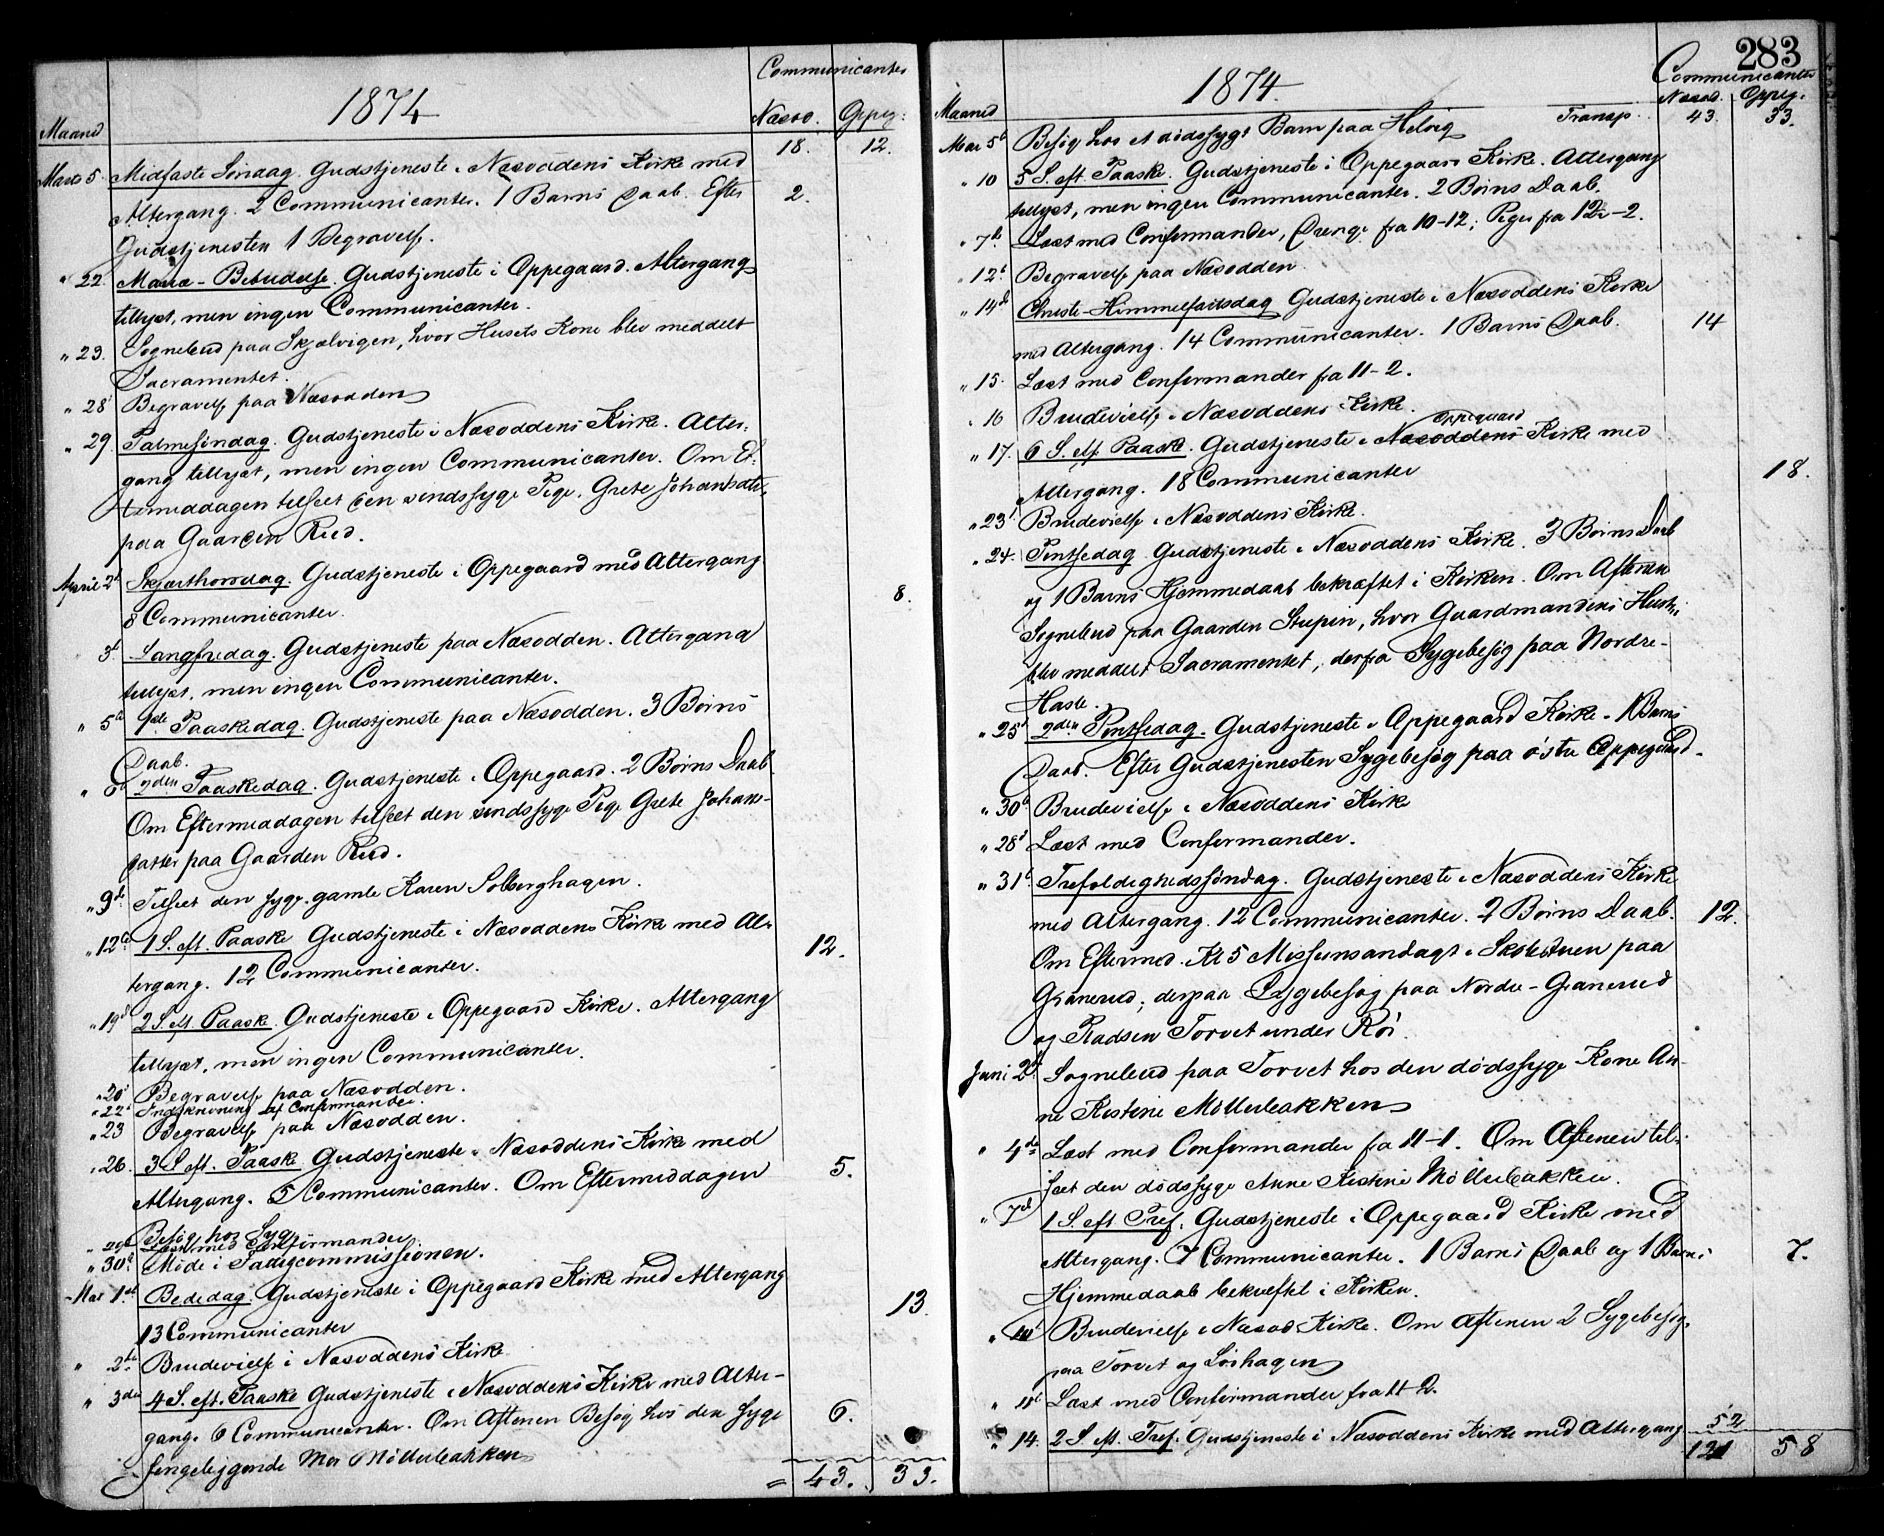 1874
Communicanter
Maaned
Næsod. Oppeg:
18. 12.
Marts 5. Midfaste Søndag. Gudstjeneste i Næsoddens Kirke med
Altergang. 2 Communicanter. 1 Barns Daab. Efter 2.
Gudstjenesten 1 Begravelse.
" 22. Mariæ-Bebudelse. Gudstjeneste i Oppegaard. Altergang
tillyst, men ingen Communicanter.
" 23. Sognebud paa Skjælvigen, hvor Husets Kone blev meddelt
Sacramentet.
" 28 Begravelse paa Næsodden
" 29. Palmesøndag. Gudstjeneste i Næsoddens Kirke. Alter-
gang tillyst, men ingen Communicanter. Om Ef-
termiddagen tilseet den sindssyge Pige, Grete Johansdtr.
paa Gaarden Rud.
April 2d Skjærthorsdag. Gudstjeneste i Oppegaard med Altergang
8 Communicanter. 8.
3d Langfredag. Gudstjeneste paa Næsodden. Altergang
tillyst, men ingen Communicanter.
" 5d 1ste Paaskedag. Gudstjeneste paa Næsodden. 3 Børns
Daab.
" 6d 2den Paaskedag. Gudstjeneste i Oppegaard. 2 Børns Daab.
Om Eftermiddagen tilseet den sindssyge Pige Grete Johans-
datter paa Gaarden Rud.
" 9de Tilseet den syge gamle Karen Solberghagen.
" 12d 1 S. eft. Paaske Gudstjeneste i Næsoddens Kirke med Al-
tergang. 12 Communicanter. 12.
" 19d 2 S. eft. Paaske. Gudstjeneste i Oppegaard Kirke. Altergang
tillyst, men ingen Communicanter.
" 20 Begravelse paa Næsodden.
" 22d Indskrivning af Confirmander.
" 23 Begravelse paa Næsodden.
" 26. 3 S. eft. Paaske Gudstjeneste i Næsoddens Kirke med
Altergang. 5 Communicanter. Om Eftermiddagen 5.
Besøg hos Syg.
" 29d Læst med Confirmander
" 30d Møde i Fattigcommissionen.
Mai 1st Bededag. Gudstjeneste i Oppegaard Kirke med Altergang
13 Communicanter 13.
" 2de Brudevielse i Næsoddens Kirke
" 3die 4 S. eft. Paaske Gudstjeneste i Næsoddens Kirke med Alter-
gang. 6 Communicanter. Om Aftenen Besøg hos den syge 6.
sengeliggende Mor Møllerbakken
= 43. 33.
283
1874.
Communicanter
Maaned
Næsod. Oppeg.
Transp. 43. 33.
Mai 5d Besøg hos et dødssygt Barn paa Helvig
" 10 5 S. eft. Paaske. Gudstjeneste i Oppegaard Kirke. Altergang
tillyst, men ingen Communicanter. 2 Børns Daab.
" 7d Læst med Confirmander, Drenge fra 10-12; Piger fra 12-2.
" 12d Begravelse paa Næsodden.
" 14d Christi-Himmelfartsdag Gudstjeneste i Næsoddens Kirke
med Altergang. 14 Communicanter. 1 Barns Daab. 14
" 15. Læst med Confirmander fra 11-2.
" 16 Brudevielse i Næsoddens Kirke.
Oppegaard
" 17. 6 S. eft. Paaske. Gudstjeneste i Næsoddens Kirke med
Altergang. 18 Communicanter 18.
" 23d Brudevielse i Næsoddens Kirke.
" 24. Pintsedag Gudstjeneste i Næsoddens Kirke. 3 Børns Daab
og 1 Barns Hjemmedaab bekræftet i Kirken. Om Aftenen
Sognebud paa Gaarden Stupin, hvor Gaardmandens Hustru
blev meddelt Sacramentet, derfra Sygebesøg paa Nordre-
Hasle.
" 25d 2den Pintsedag. Gudstjeneste i Oppegaard Kirke - 1 Barns
Daab. Efter Gudstjenesten Sygebesøg paa østre Oppegaard.
" 30d Brudevielse i Næsoddens Kirke
" 28d Læst med Confirmander.
" 31d Trefoldighedssøndag. Gudstjeneste i Næsoddens Kirke
med Altergang. 12 Communicanter. 2 Børns Daab. 12.
Om Eftermid. Kl 5 Missionsandagt i Skolestuen paa
Granerud; derpaa Sygebesøg paa Nordre-Granerud
og Pladsen Torvet under Røi.
Juni 2d Sognebud paa Torvet hos den dødssyge Kone An-
ne Kistine Møllerbakken
" 4de Læst med Confirmander fra 11-1. Om Aftenen til-
seet den dødssyge Anne Kistine Møllerbakken.
" 7d 1 S. eft. Tref. Gudstjeneste i Oppegaard Kirke med
Altergang. 7 Communicanter. 1 Barns Daab og 1 Barns 7.
Hjemmedaab bekræftet i Kirken.
" 10d Brudevielse i Næsod Kirke. Om Aftenen 2 Sygebesøg,
paa Torvet og Løshagen
" 11d Læst med Confirmander fra 11-2.
" 14. 2 S. eft. Tref. Gudstjeneste i Næsoddens Kirke med Altergang 52
121 58